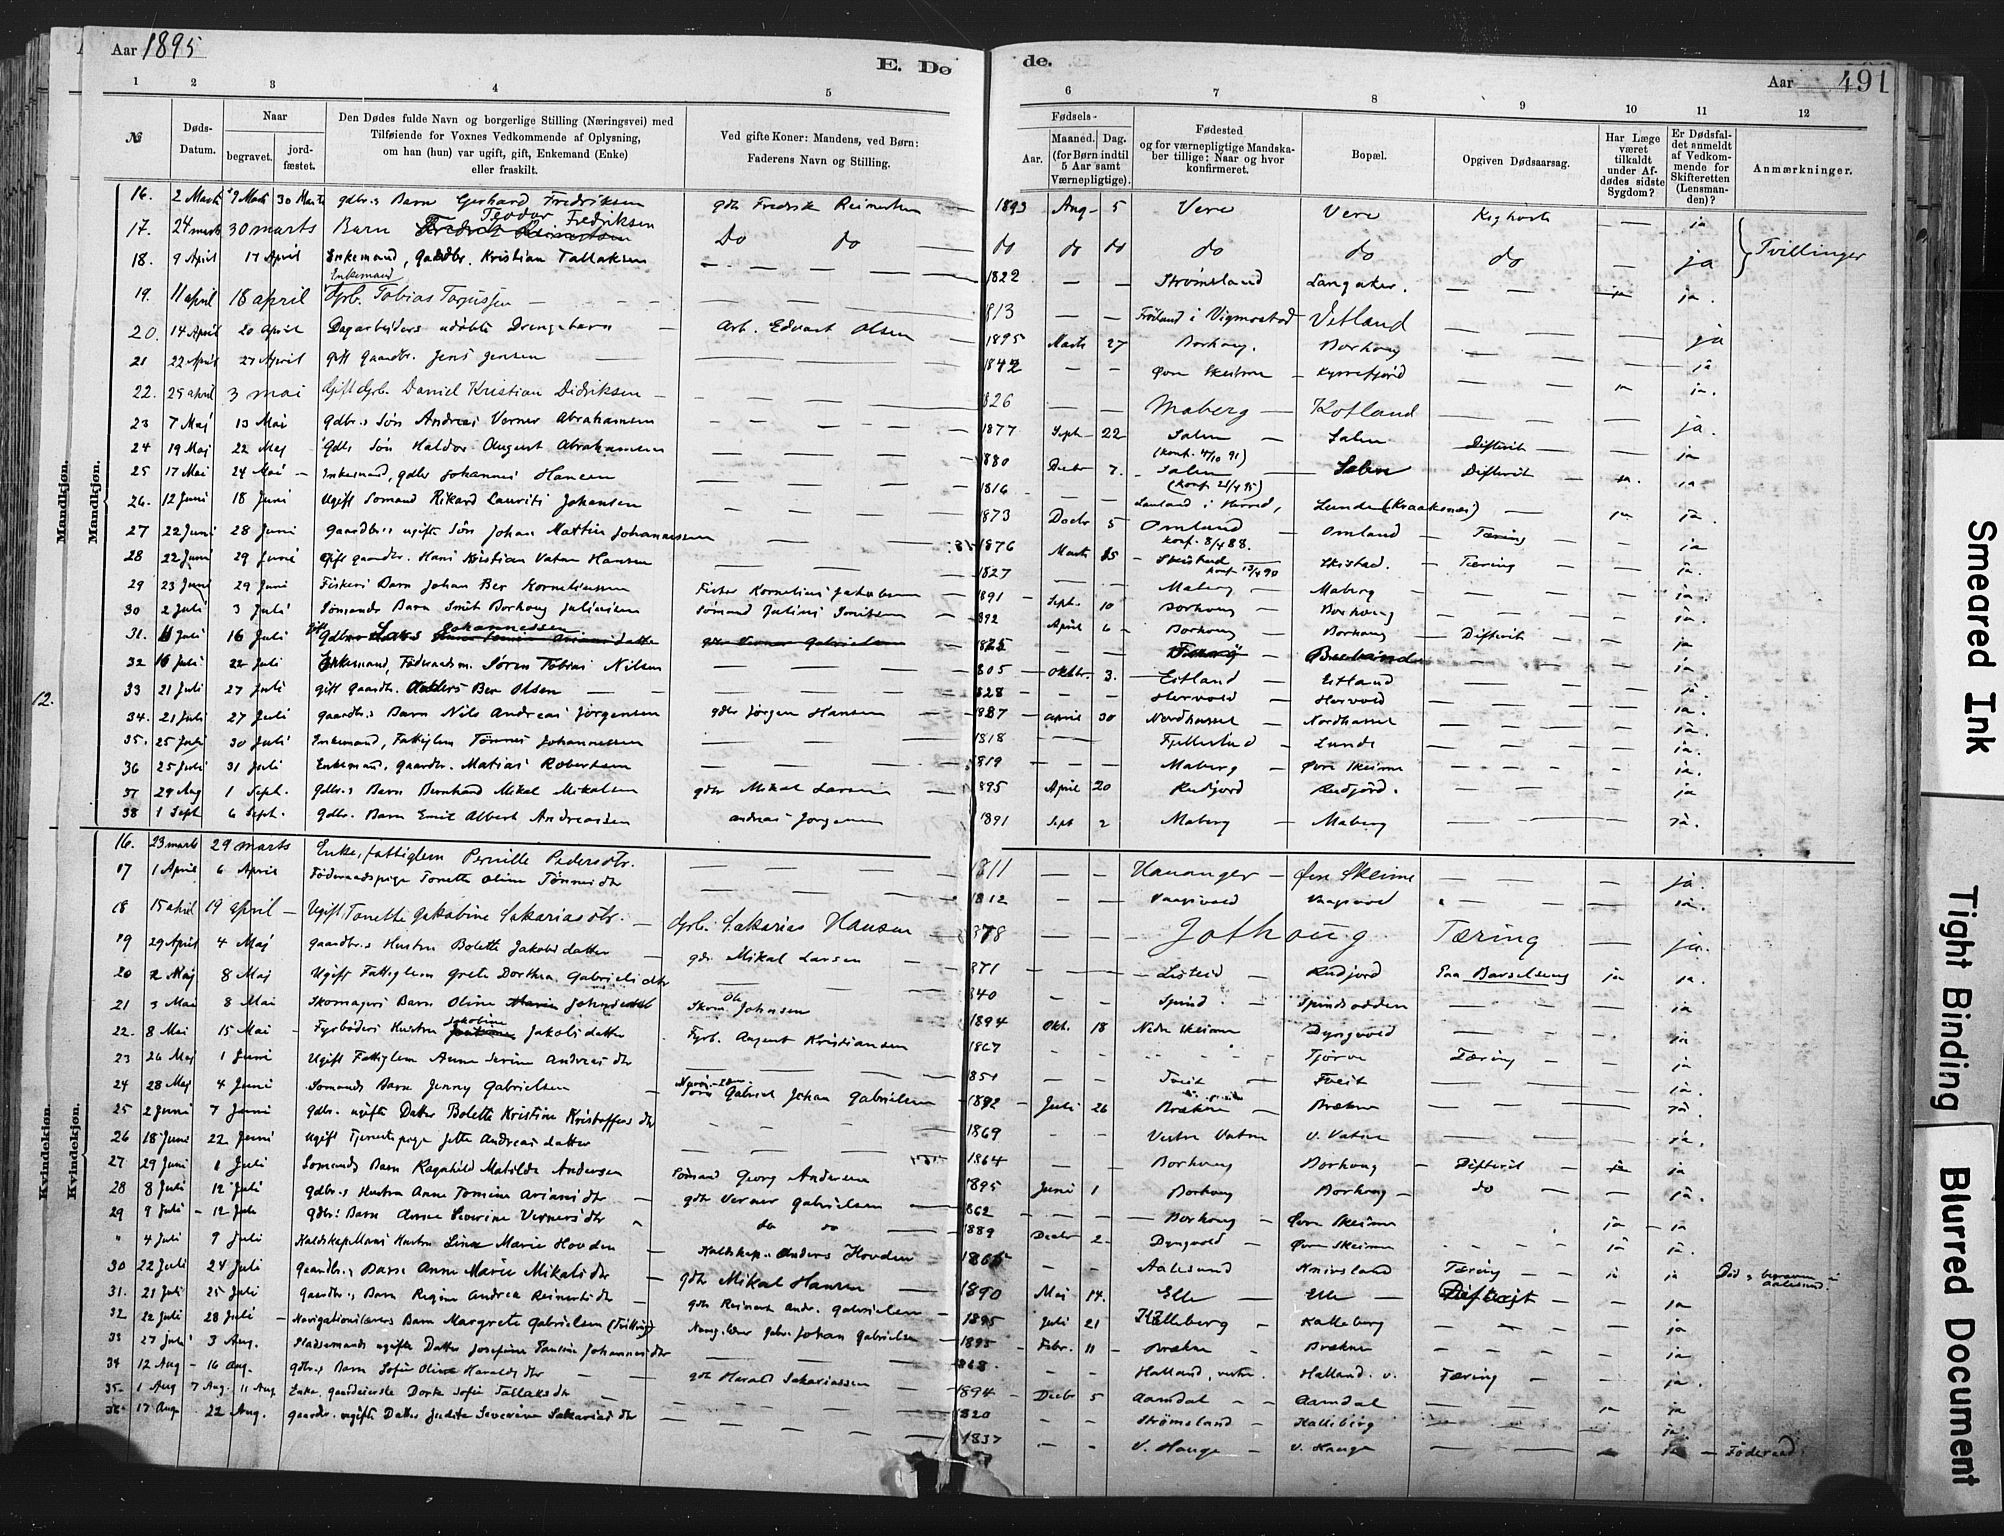 Aar 1895
E. Dø
de.
Aar 491
1 2 3 4 5 6 7 8 9 10 11 12
№
Døds-Datum.
Naar
begravet.
jord-fæstet.
Den Dødes fulde Navn og borgerlige Stilling (Næringsvei) med
Tilføiende for Voxnes Vedkommende af Oplysning,
om han (hun) var ugift, gift, Enkemand (Enke)
eller fraskilt.
Ved gifte Koner: Mandens, ved Børn:
Faderens Navn og Stilling.
Fødsels-
Aar.
Maaned. Dag.
(for Børn indtil
5 Aar samt
Værnepligtige).
Fødested
og for værnepligtige Mandska-
ber tillige: Naar og hvor
konfirmeret.
Bopæl.
Opgiven Dødsaarsag.
Har Læge
været
tilkaldt
under Af-
dødes sidste
Sygdom?
Er Dødsfal-
det anmeldt
af Vedkom-
mende for
Skifteretten
(Lensman-
den)?
Anmærkninger.
Mandkjøn.
Mandkjøn.
16. 2 Marts 9 Marts 30 Marts gdbr.s Barn Gerhard Fredriksen gdbr Fredrik Reinertsen 1893 Aug 5 Vere Vere Kighoste ja
17. 24 marts 30 marts Barn Teodor Fredriksen Do do do do do do do do ja } Tvillinger
18. 9 April 17 April Enkemand, gaardbr. Kristian Tallaksen 1822 Strømsland Langaker. ja ja.
19. 11 april 18 april Enkemand Gbr. Tobias Tarjussen 1813 Frøiland i Vigmostad Vetland ja
20. 14 April 20 April Dagarbeiders udøbte Drengebarn Arb. Edvart Olsen 1895 Marts 27 Borhoug. Borhoug ja
21 22 April 27 April gift gaardbr. Jens Jensen 1842 Øvre Skeime Kyrrefjord ja ja.
22. 25 april 3 mai Gift Gbr. Daniel Kristian Didriksen 826 Maberg Kotland ja.
23 7 Maj 13 Mai gdbr.s Søn Andreas Verner Abrahamsen 1877 Septr 22 Salen (konf. 4/10 91) Salen Difterit ja
24 19 Maj 22 Maj gdbr. Søn Haldor August Abrahamsen 1880 Decbr 7. Salen Salen Difterit ja ja
25 17 Mai 24 Mai Enkemand, gdbr Johannes Hansen 1816 i Herred, Lunde (Kraaknes) ja ja.
26. 12 Juni 18 Juni Ugift Sømand Rikard Laurits Johansen 1873 Decbr 5 Omland konf. 8/4 88. Omland Tæring ja
27 22 Juni 28 Juni Gaardbr.s ugifte Søn Johan Mattin Johannessen 1876 Marts 15 Skistad Skistad. Tæring ja.
28 22 Juni 29 Juni Gift gaardbr. Hans Kristian Vatne Hansen 1827 Maberg Maberg ja.
29 23 Juni 29 Juni Fiskers Barn Johan Ber Korneliussen Fisker Kornelius Jakobsen 1891 Sept. 10 Borhoug Borhoug ja.
30 2 Juli 3 Juli Sømands Barn Smit Borhoug Juliussen Sømand Julius Smitsen 892 April 6 Borhoug Borhoug Difterit ja
31. 11 Juli 16 Juli Johannessen 1825 ja
32 16 Juli 22 Juli Enkemand, Føderaadsm. Søren Tobias Nilsen 805 Oktbr. 3. Eitland Eitland ja
33 21 Juli 27 Juli gift Gaardbr. Anders Ber Olsen 828 Hervold Hervold ja
34. 21 Juli 27 Juli gaardbr.s Barn Nils Andreas Jørgensen gdbr Jørgen Hansen 1887 april 30 Nordhassel Nordhassel ja.
35. 25 Juli 30 Juli Enkemand, Fattiglem Tønnes Johannessen 1818 Fjellestad Lunde ja.
36 25 Juli 31 Juli Enkemand, gaardbr. Matias Robertsen 1819 Maberg Øvre Skeime ja.
37 29 Aug 1 Sept. gdbr.s Barn Bernhard Mikal Mikalsen gdbr Mikal Larsen 895 April 20 Rudjord Rudjord. ja
38 1 Sept 6 Sept. gdbr. Barn Emil Albert Andreassen Andreas Jørgensen 1891 Sept 2 Maberg Maberg ja.
12.
Kvindekjøn.
Kvindekjøn.
16. 23 marts 29 marts Enke, fattiglem Pernille Pedersdtr. 1811 Hananger Øvre Skeime ja
17 1 April 6 April Føderaadspige Tonette Oline Tønnesdtr 1812 Vaagsvold Vaagsvold ja.
18 15 april 19 april Ugift Tonette Jakobine Sakariasdtr. Gbr. Sakarias Hansen 878 Jothoug Tæring ja.
19 29 April 4 Maj gaardbr.s Hustru Bolette Jakobsdatter gdr Mikal Larsen 871 Listeid Rudjord Paa Barselseng ja ja.
20 2 Maj 8 Maj Ugift Fattiglem Grete Dorthea Gabrielsdtr 840 Spind Spindsodden ja
21 3 Mai 8 Mai Skomagers Barn Oline Johnsdatter Skom. Ole Johnsen 1894 Okt. 18 Nedre Skeime Dyngvold ja
22. 8 Mai 15 Mai Fyrbøders Hustru Jakobine Jakobsdatter Fyrb. August Kristiansen 1867 Tjørve Tæring ja
23 26 Maj 1 Juni Ugift Fattiglem Anne Serine Andreasdtr 1851 Tveit Tveit ja
24 28 Maj 4 Juni Sømands Barn Jenny Gabrielsen Gabriel Johan Gabrielsen 1892 Juli 26 Brækne Brækne ja.
25 2 Juni 7 Juni gdbr. ugifte Datter Bolette Kristine Kristoffersdtr 1869 Vestre Vatne V. Vatne ja.
26 18 Juni 22 Juni Ugift Tjenestepige Jette Andreasdatter 1864 Borhoug Borhoug Difterit ja ja
27 29 Juni 1 Juli Sømands Barn Ragnhild Matilde Andersen Sømand Georg Andersen 1895 Juni 1 Borhoug Borhoug do ja.
28 8 Juli 12 Juli Gdbr.s Hustru Anne Tomine Ariansdtr gdbr Verner Gabrielsen 862 Borhoug Øvre Skeime ja ja
29 9 Juli 12 Juli Gdbr: Barn Anne Severine Vernersdtr do do 1889 Decbr 2. Dyngvold Øvre Skeime ja ja.
" 4 Juli 9 Juli Kaldskapellans Hustru Lina Marie Hovden Kaldskap. Anders Hovden 1866 Aalesund Knivsland Tæring ja ja Død & begraven i Aalesund.
30 22 Juli 24 Juli gaardbr.s Barn Anne Marie Mikalsdtr gdbr Mikal Hansen 1890 Mai 14. Elle Elle Difterit ja
31. 21 Juli 25 Juli Gaardbr.s Barn Regine Andrea Reinertsdtr gdbr Reinert Andr. Gabrielsen 1895 Juli 21 Kalleberg Kalleberg ja
32 22 Juli 28 Juli Navigationslærers Barn Margrete Gabrielsen (Tvilling) Navig. lærer Gabr. Johan Gabrielsen 1895 Febr. 11 Brækne Brækne ja
33 27 Juli 3 Aug. Pladsemands ugifte Datter Josefine Pauline Johannesdtr 868 Halland, vestre. Halland. v. Tæring ja.
34 12 Aug 16 Aug. gdbr.s Barn Sofie Oline Haraldsdtr gdbr Harald Sakariassen 1894 Decbr 5 Aamdal Aamdal ja ja
35. 1 Aug 7 Aug. 11 Aug Enke, gaardeierske Dorte Sofie Tallaksdtr 820 Strømsland Kalleberg ja.
36. 17 Aug 22 Aug. gaardbr. ugifte Datter Judite Severine Sakariasdtr 1837 V. Hauge V. Hauge ja Føderaad
Smeared Ink
Tight Binding
Blurred Document